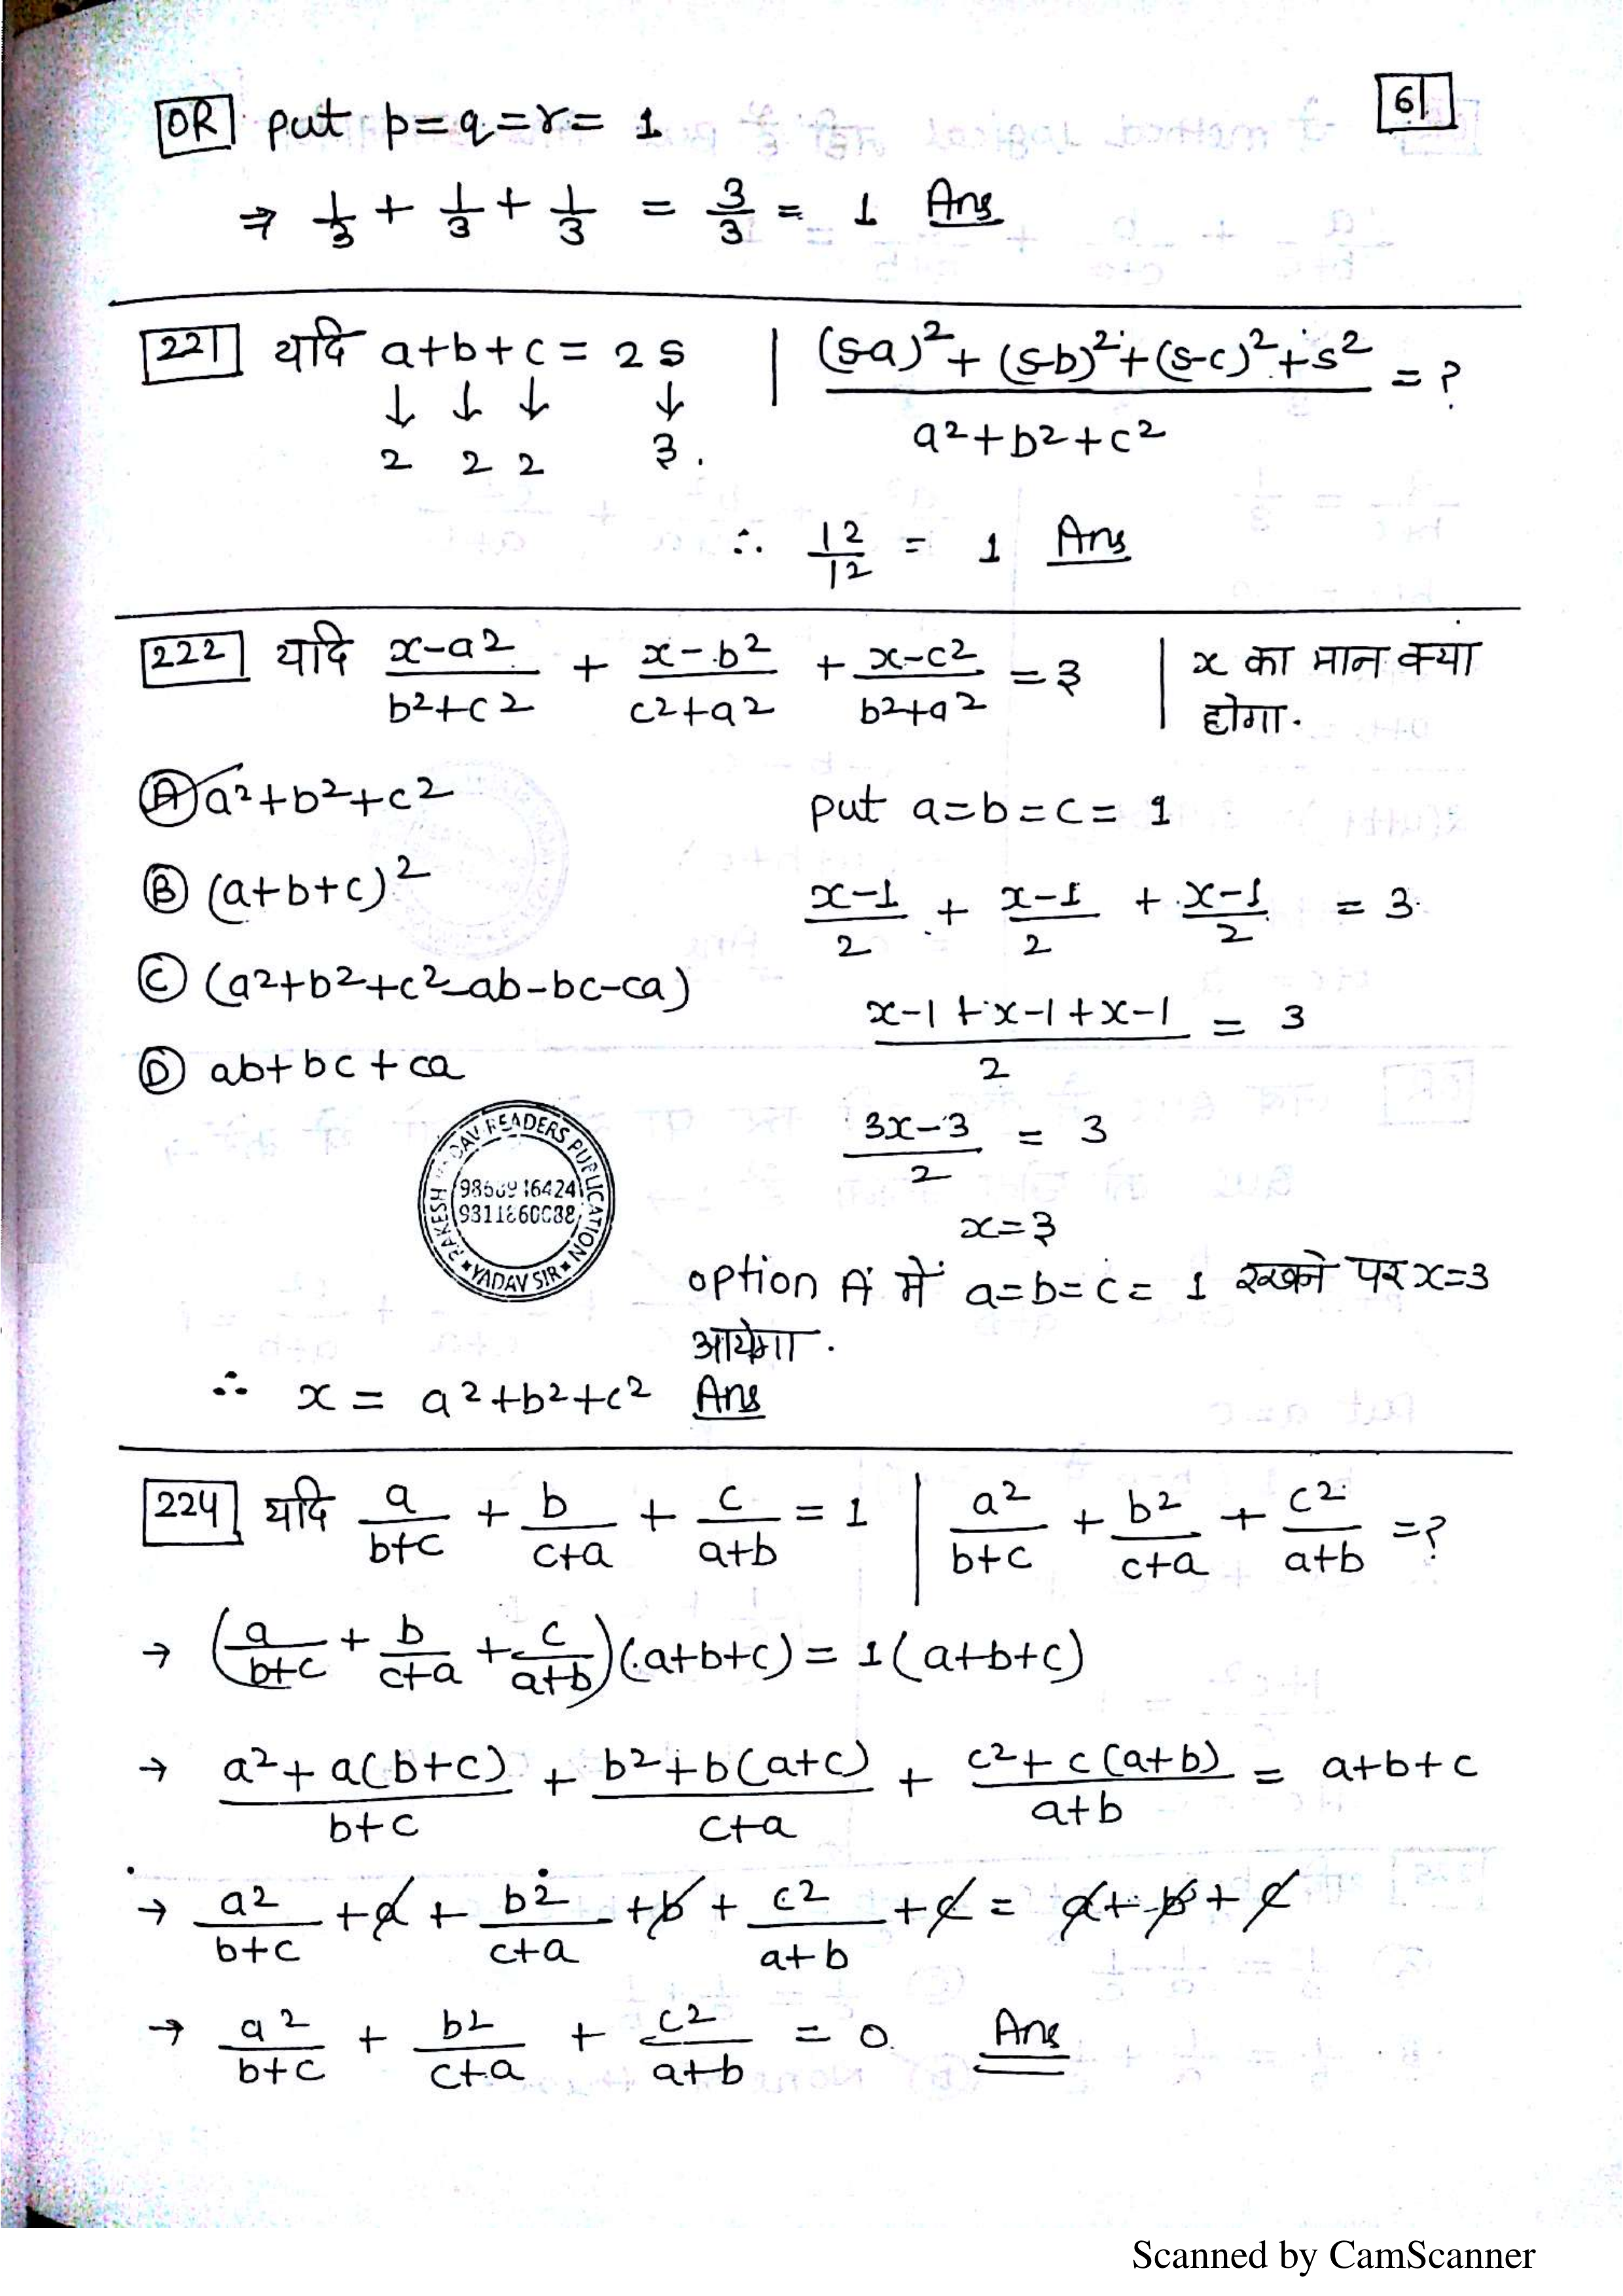 61
OR put p=q=r= 1
⇒ 1/3 + 1/3 + 1/3 = 3/3 = 1 Ans
221 यदि a+b+c = 2s | ((s-a)²+(s-b)²+(s-c)²+s²)/(a²+b²+c²) = ?
↓ ↓ ↓ ↓
2 2 2 3.
∴ 12/12 = 1 Ans
222 यदि (x-a²)/(b²+c²) + (x-b²)/(c²+a²) + (x-c²)/(b²+a²) = 3 | x का मान क्या होगा.
Ⓐ a²+b²+c²
Ⓑ (a+b+c)²
Ⓒ (a²+b²+c²-ab-bc-ca)
Ⓓ ab+bc+ca
put a=b=c= 1
(x-1)/2 + (x-1)/2 + (x-1)/2 = 3
(x-1+x-1+x-1)/2 = 3
(3x-3)/2 = 3
x=3
option A में a=b=c= 1 रखने पर x=3
आयेगा.
RAKESH YADAV READERS PUBLICATION
YADAV SIR
∴ x = a²+b²+c² Ans
224 यदि a/(b+c) + b/(c+a) + c/(a+b) = 1 | a²/(b+c) + b²/(c+a) + c²/(a+b) =?
→ (a/(b+c) + b/(c+a) + c/(a+b))(a+b+c) = 1(a+b+c)
→ (a²+a(b+c))/(b+c) + (b²+b(a+c))/(c+a) + (c²+c(a+b))/(a+b) = a+b+c
→ a²/(b+c) + a + b²/(c+a) + b + c²/(a+b) + c = a+b+c
→ a²/(b+c) + b²/(c+a) + c²/(a+b) = 0. Ans
Scanned by CamScanner